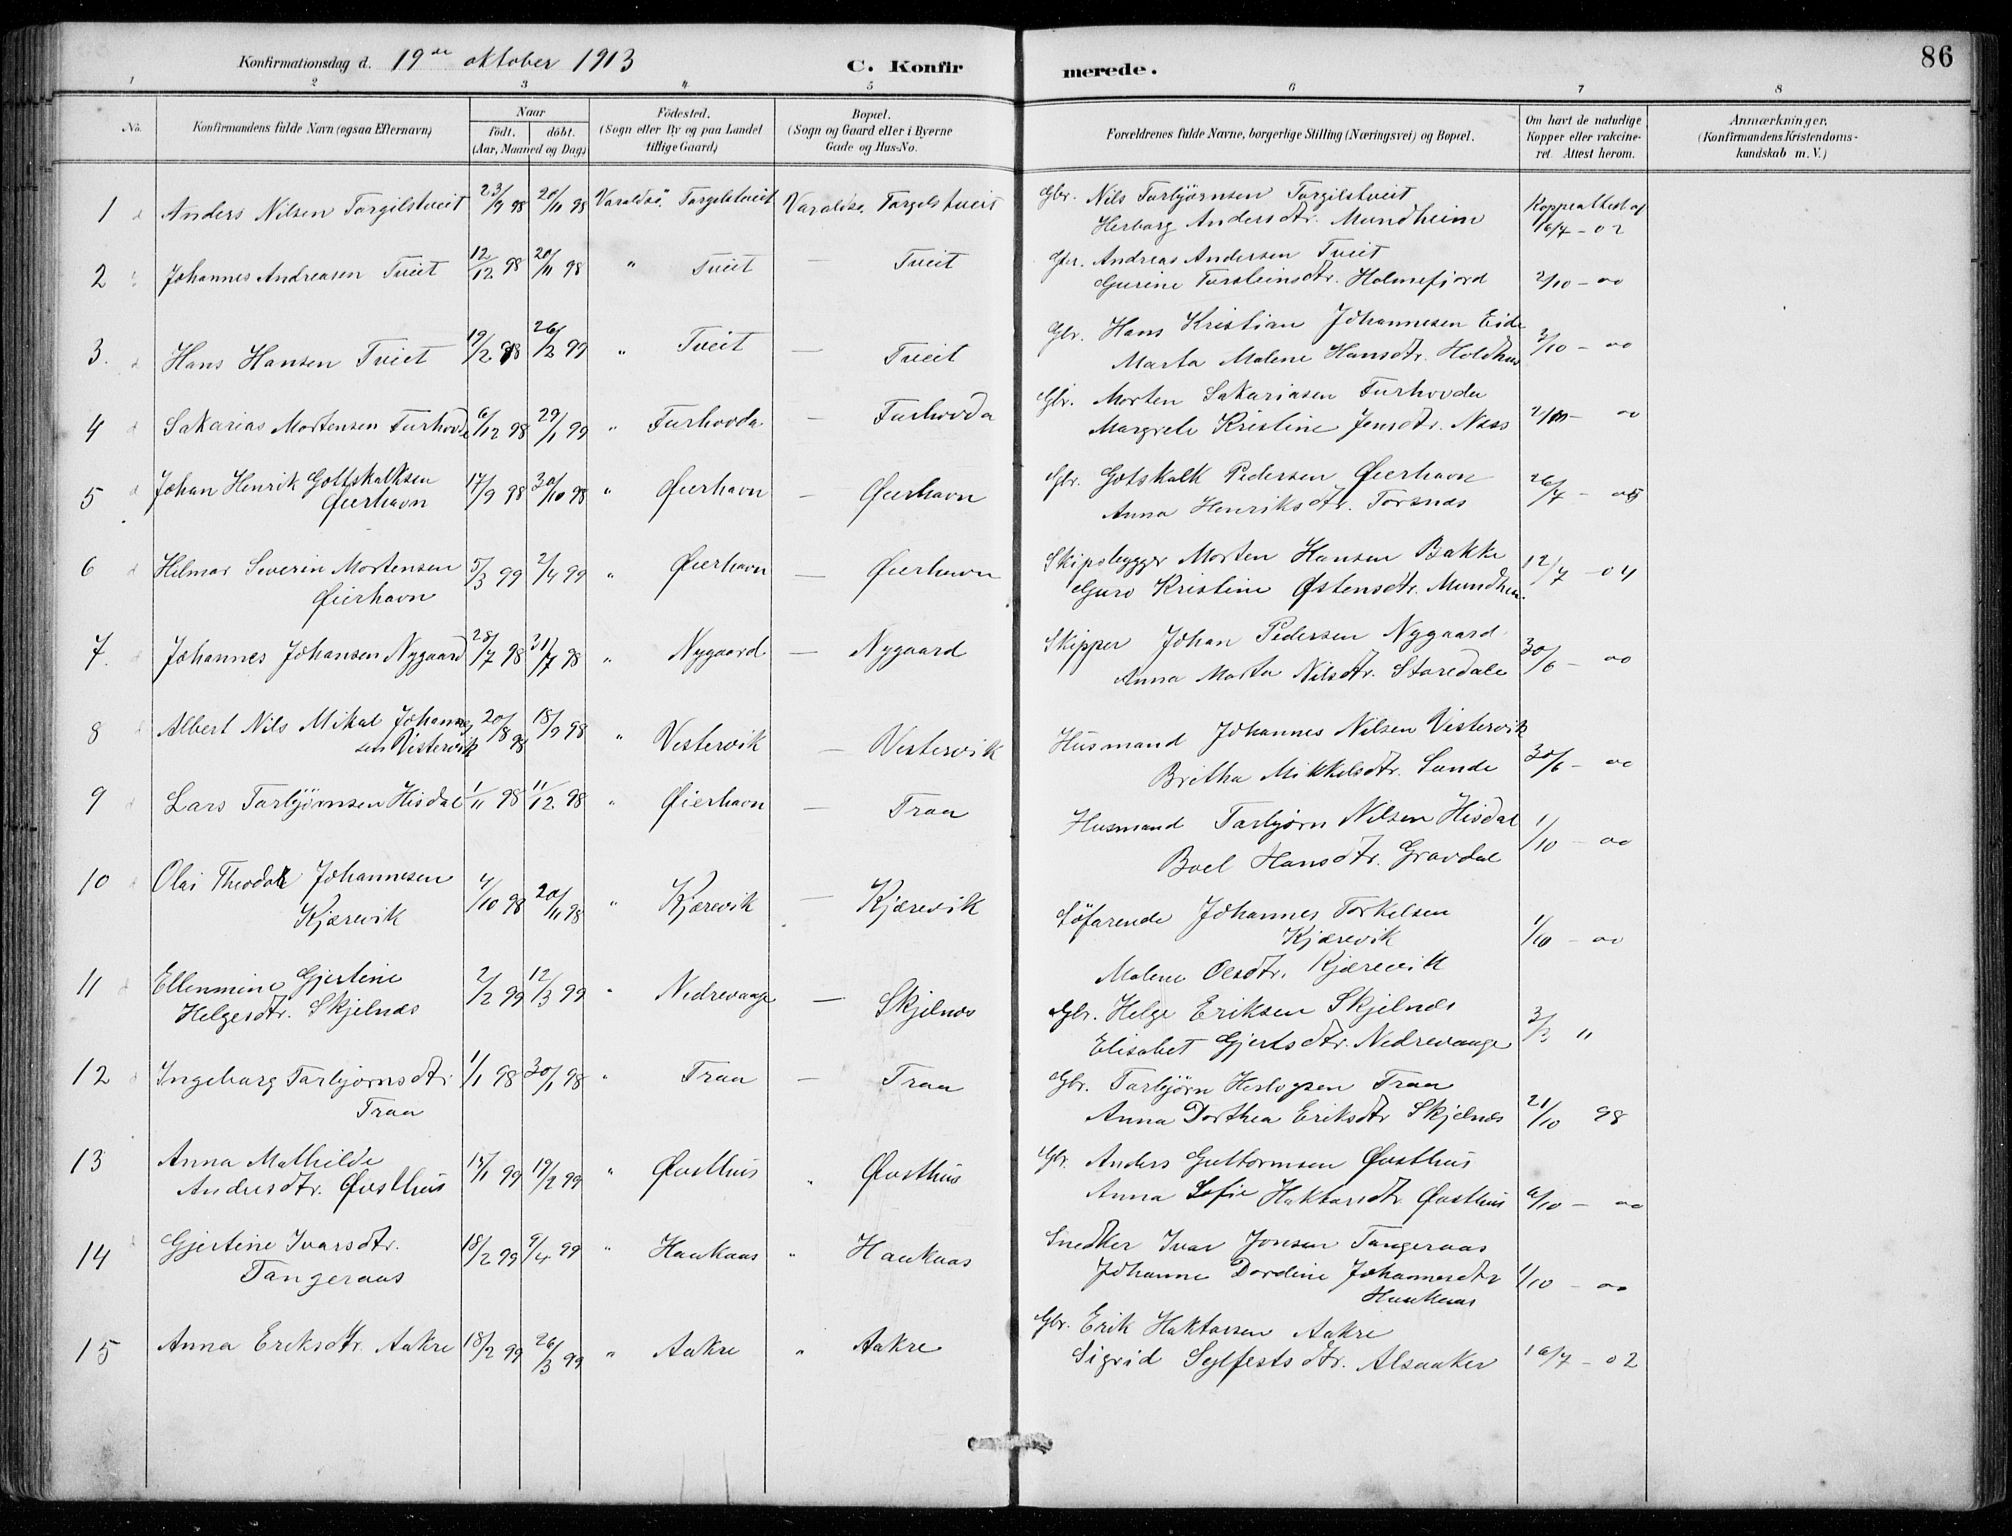 Konfirmationsdag d. 19de oktober 1913
C. Konfirmerede.
86
1 2 3 4 5 6 7 8
No. Konfirmandens fulde Navn (ogsaa Efternavn) Naar födt. döbt. (Aar, Maaned og Dag) Födested. (Sogn eller By og paa Landet tillige Gaard) Bopæl. (Sogn og Gaard eller i Byerne Gade og Hus-No. Forældrenes fulde Navne, borgerlige Stilling (Næringsvei) og Bopæl. Om havt de naturlige Kopper eller vakcineret. Attest herom. Anmærkninger, (Konfirmandens Kristendomskundskab m. V.)
1 Anders Nilsen Torgilstveit 23/9 98 20/11 98 Varaldsö, Torgilstveit Varaldsö, Torgilstveit Gbr. Nils Torbjørnsen Torgilstveit
Herborg Andersdtr. Mundheim Koppeattest af 16/7 - 02
2 Johannes Andreasen Tveit 12/12 98 20/11 98 " Tveit — Tveit Gbr. Andreas Andersen Tveit
Gurine Torsteinsdtr. Holmefjord 2/10 - 00
3. Hans Hansen Tveit 19/12 98 26/2 99 " Tveit — Tveit Gbr. Hans Kristian Johannesen Eide
Marta Malene Hansdtr. Holdhus 2/10 - 00
4 Sakarias Mortensen Furhovda 6/12 98 29/1 99 " Furhovda — Furhovda Gbr. Morten Sakariasen Furhovda
Margrete Kristine Jensdtr. Næss 2/10 - 00
5 Johan Henrik Gottskalksen
Øierhavn 17/9 98 30/10 98 " Øierhavn — Øierhavn Gbr. Gotskalk Pedersen Øierhavn
Anna Henriksdtr. Torsnes 26/7 -
6 Hilmar Severin Mortensen
Øierhavn 5/3 99 2/4 99 " Øierhavn — Øierhavn Skipsbygger Morten Hansen Bakke
Guro Kristine Østensdtr. Mundheim. 12/7 - 04
7. Johannes Johansen Nygaard 28/7 98 31/7 98 " Nygaard — Nygaard Skipper Johan Pedersen Nygaard
Anna Marta Nilsdtr. Staredale 30/6 - 00
8 Albert Nils Mikal Johannes
sen Vestervik 20/8 98 18/9 98 " Vestervik — Vestervik Husmand Johannes Nilsen Vestervik
Britha Mikkelsdtr. Sunde 30/6 - 00
9 Lars Torbjørnsen Hisdal 1/11 98 11/12 98 " Øierhavn — Traa Husmand Torbjørn Nilsen Hisdal
Boel Hansdtr. Gravdal 1/10 - 00
10 Olai Theodor Johannesen
Kjærevik 4/10 98 20/11 98 " Kjærevik — Kjærevik Söfarende Johannes Torkelsen
Kjærevik
Malene Olsdtr. Kjærevik 1/10 - 00
11 Ellenmine Gjertine
Helgesdtr. Skjelnes 2/2 99 12/3 99 " Nedrevaage — Skjelnes Gbr. Helge Eriksen Skjelnes
Elisabet Gjertsdtr. Nedrevaage 3/3 "
12 Ingeborg Torbjørnsdtr.
Traa 1/1 98 30/1 98 " Traa — Traa Gbr. Torbjørn Herlogsen Traa
Anna Dorthea Eriksdtr Skjelnes 21/10 98
13 Anna Mathilde
Andersdtr. Øvsthus 14/1 99 19/2 99 " Øvsthus " Øvsthus Gbr. Anders Guttormsen Øvsthus
Anna Sofie Haktorsdtr Øvsthus 6/10 - 00
14 Gjertine Ivarsdtr.
Tangeraas 18/2 99 9/4 99 " Haukaas " Haukaas Snedker Ivar Jonsen Tangeraas
Johanne Dordine Johannesdtr
Haukaas 1/10 - 00
15 Anna Eriksdtr. Aakre 18/2 99 26/3 99 " Aakre " Aakre Gbr. Erik Haktorsen Aakre
Sigrid Sylfestsdtr. Alsaaker 16/7 - 02